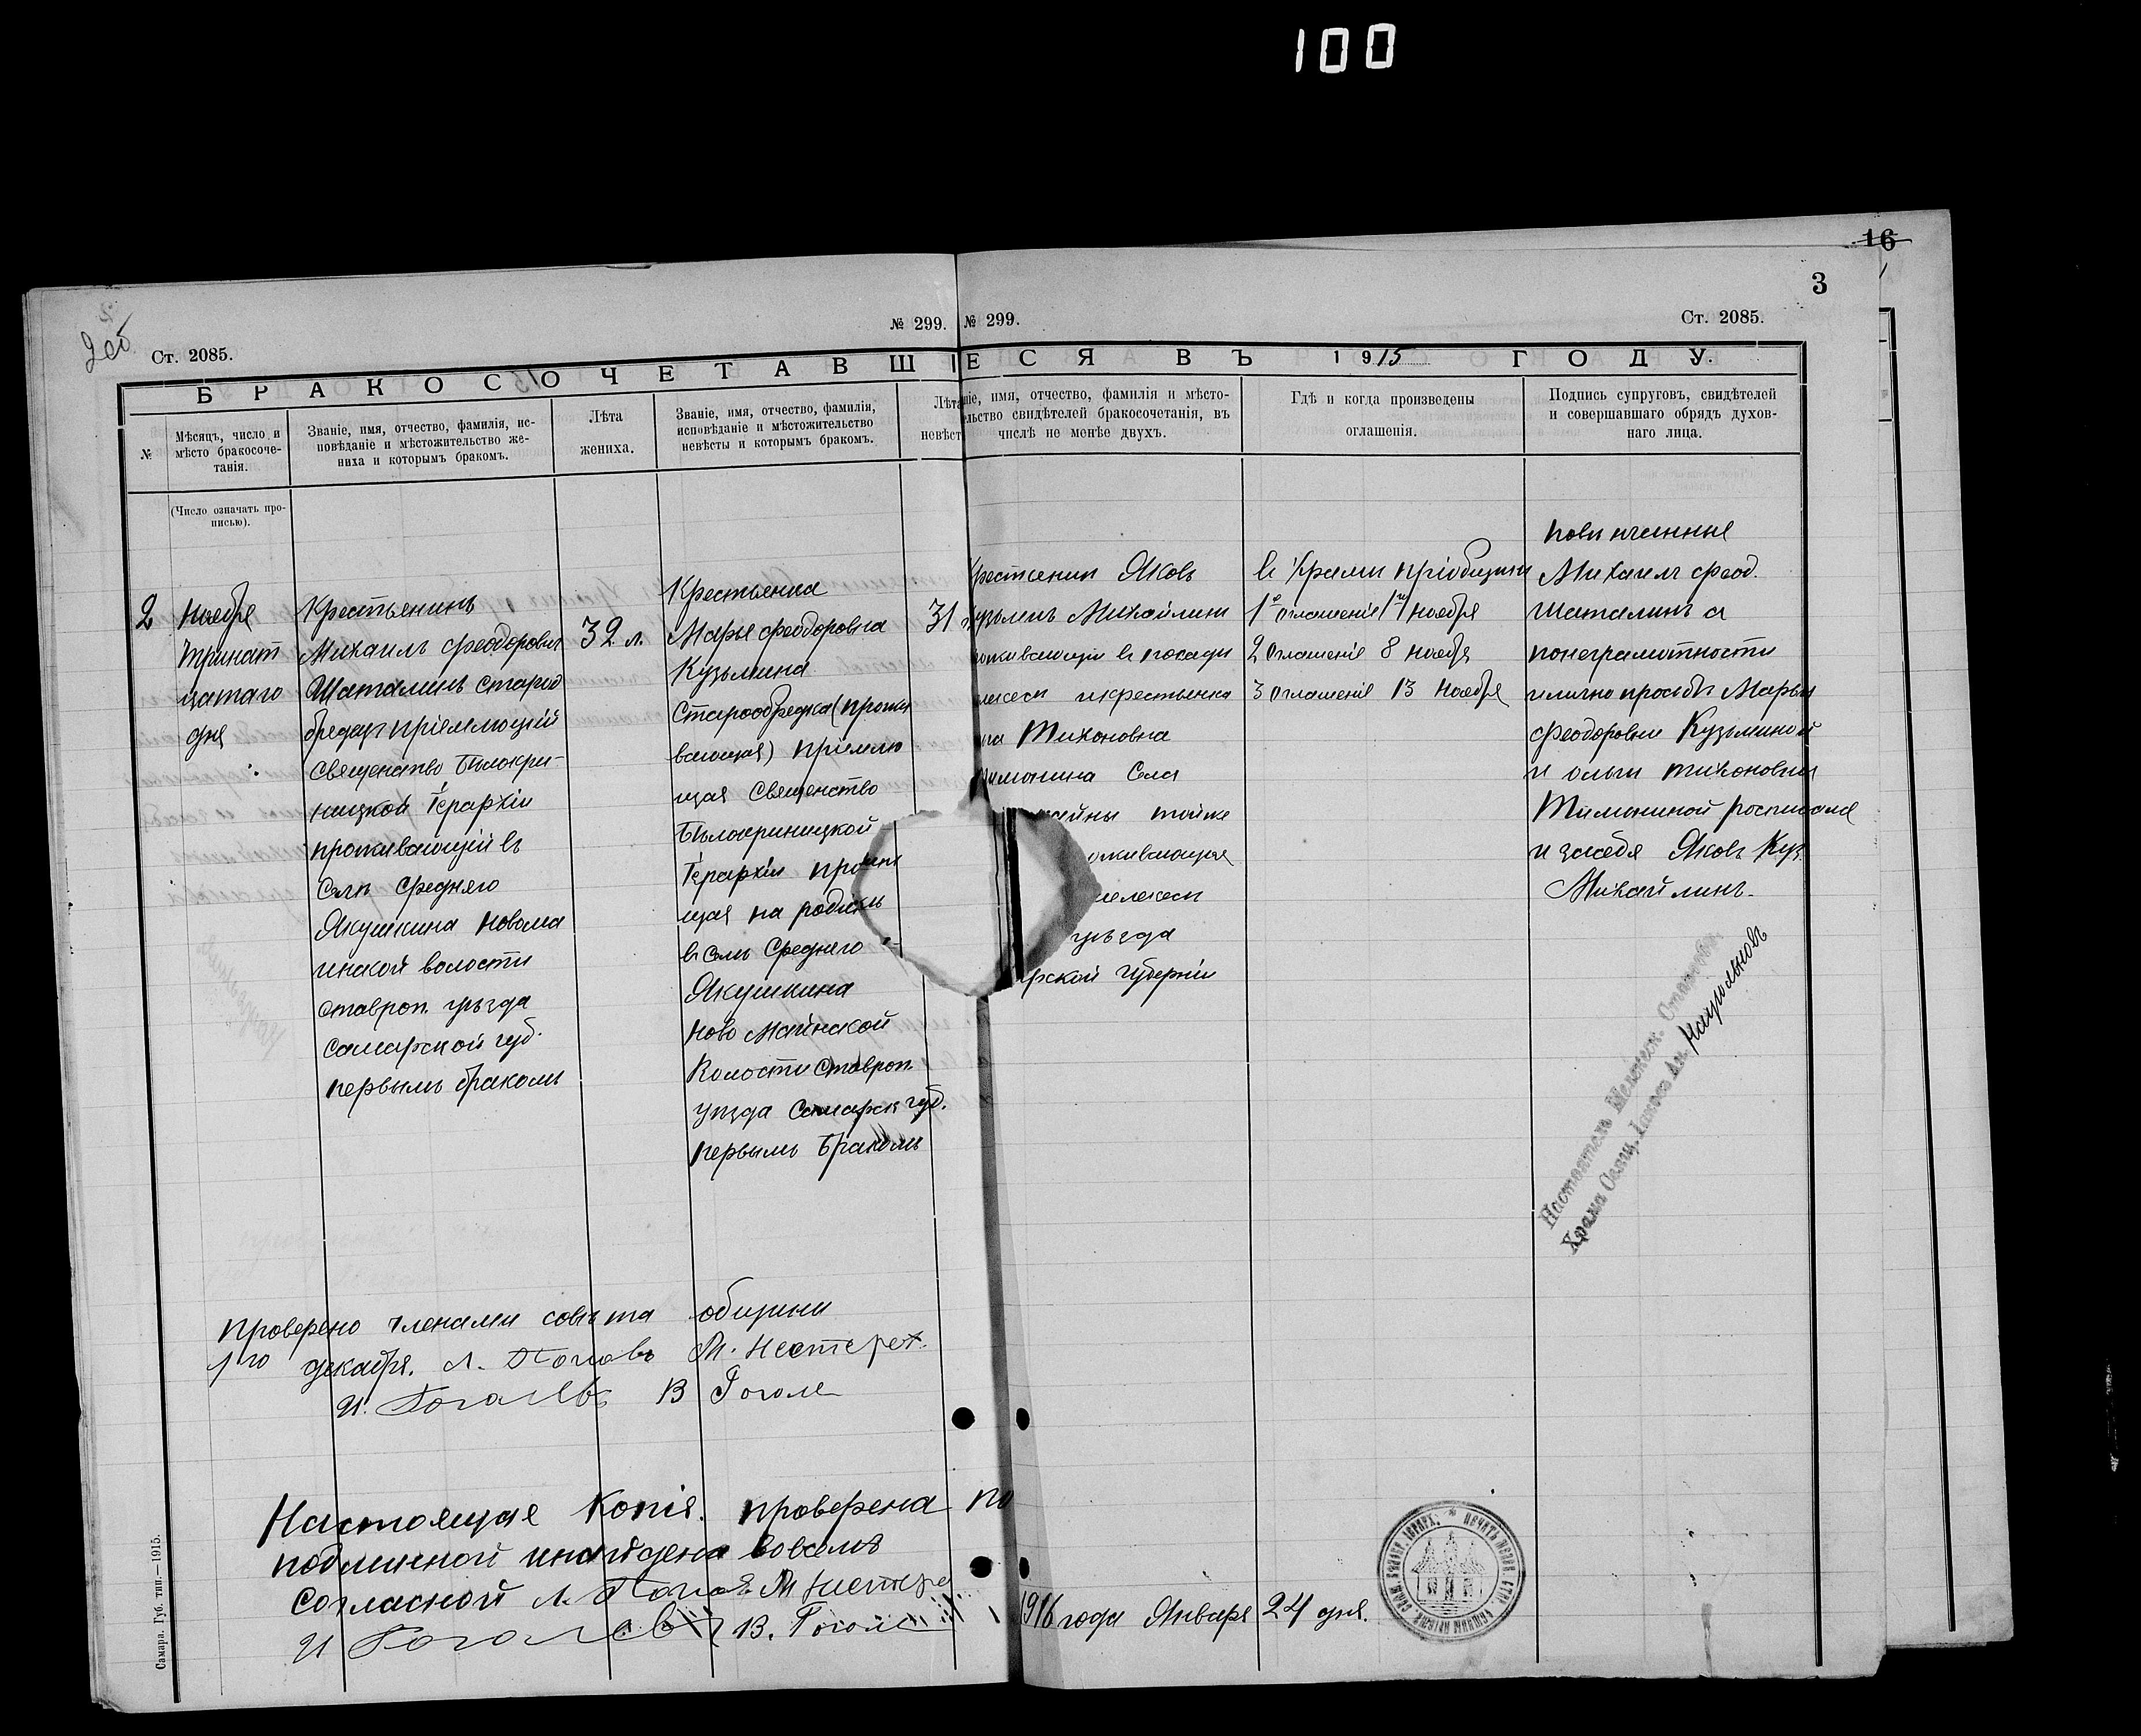 100
16
3
2об
Ст. 2085.
№ 299.
№ 299.
Ст. 2085.
БРАКОСОЧЕТАВШІЕСЯ ВЪ 1915 ГОДУ.
№
Мѣсяцъ, число и
мѣсто бракосоче-
танія.
(Число означать про-
писью).
Званіе, имя, отчество, фамилія, ис-
повѣданіе и мѣстожительство же-
ниха и которымъ бракомъ.
Лѣта
жениха.
Званіе, имя, отчество, фамилія,
исповѣданіе и мѣстожительство
невѣсты и которымъ бракомъ.
Лѣта
невѣст
ніе, имя, отчество, фамилія и мѣсто-
льство свидѣтелей бракосочетанія, въ
числѣ не менѣе двухъ.
Гдѣ и когда произведены
оглашенія.
Подпись супруговъ, свидѣтелей
и совершавшаго обрядъ духов-
наго лица.
2
Ноября
тринат
цатаго
дня
Крестьянинъ
Михаилъ Феодоровъ
Шаталинъ Старо
обрядец пріемлющій
священство Бѣлокри-
ницкой Іерархіи
проживающій въ
Селѣ Средняго
Якушкина Новома
инской волости
ставроп. уѣзда
самарской губ.
первымъ бракомъ
32 л.
Крестьянка
Марья Феодоровна
Кузьмина
Старообрядка (прожи
вающая) пріемлю
щая Священство
Бѣлокриницкой
Іерархіи
щая на родинѣ
в Селѣ Средняго
Якушкина
Ново Маинской
Волости Ставроп.
уѣзда Самарск губ.
первымъ бракомъ
31
рестьянин Яковъ
узьминъ Михайлинъ
оживающіи в посади
лекеси икрестьянка
на Тихоновна
имонина Села
айны тойже
оживающая
мелекеси
уѣзда
рской губерніи
в Храми
1е оглашеніе 1го ноября
2 Оглашеніе 8 ноября
3 оглашеніе 13 ноября
повѣнчанные
Михаилъ Феод.
Шаталинъ а
понеграмотности
иличной прозбѣ Марьи
Феодоровны Кузьминой
и ольги тихоновны
Тимониной росписался
и засебя Яковъ Куз.
Михайлинъ.
Настоятель Мелекеск. Старообр.
Храма Свящ.
Проверено членами совѣта общины
1го декабря. Л. Поповъ М. Нестеров
И. Гогалевъ В Гогале
Настоящая Копія. проверена по
подлинной инайдена вовсемъ
согласной Л. Поповъ М Нестеро
И Гогалевъ В. Гогале
1916 года Января 24 дня.
Самара. Губ. тип.—1915.